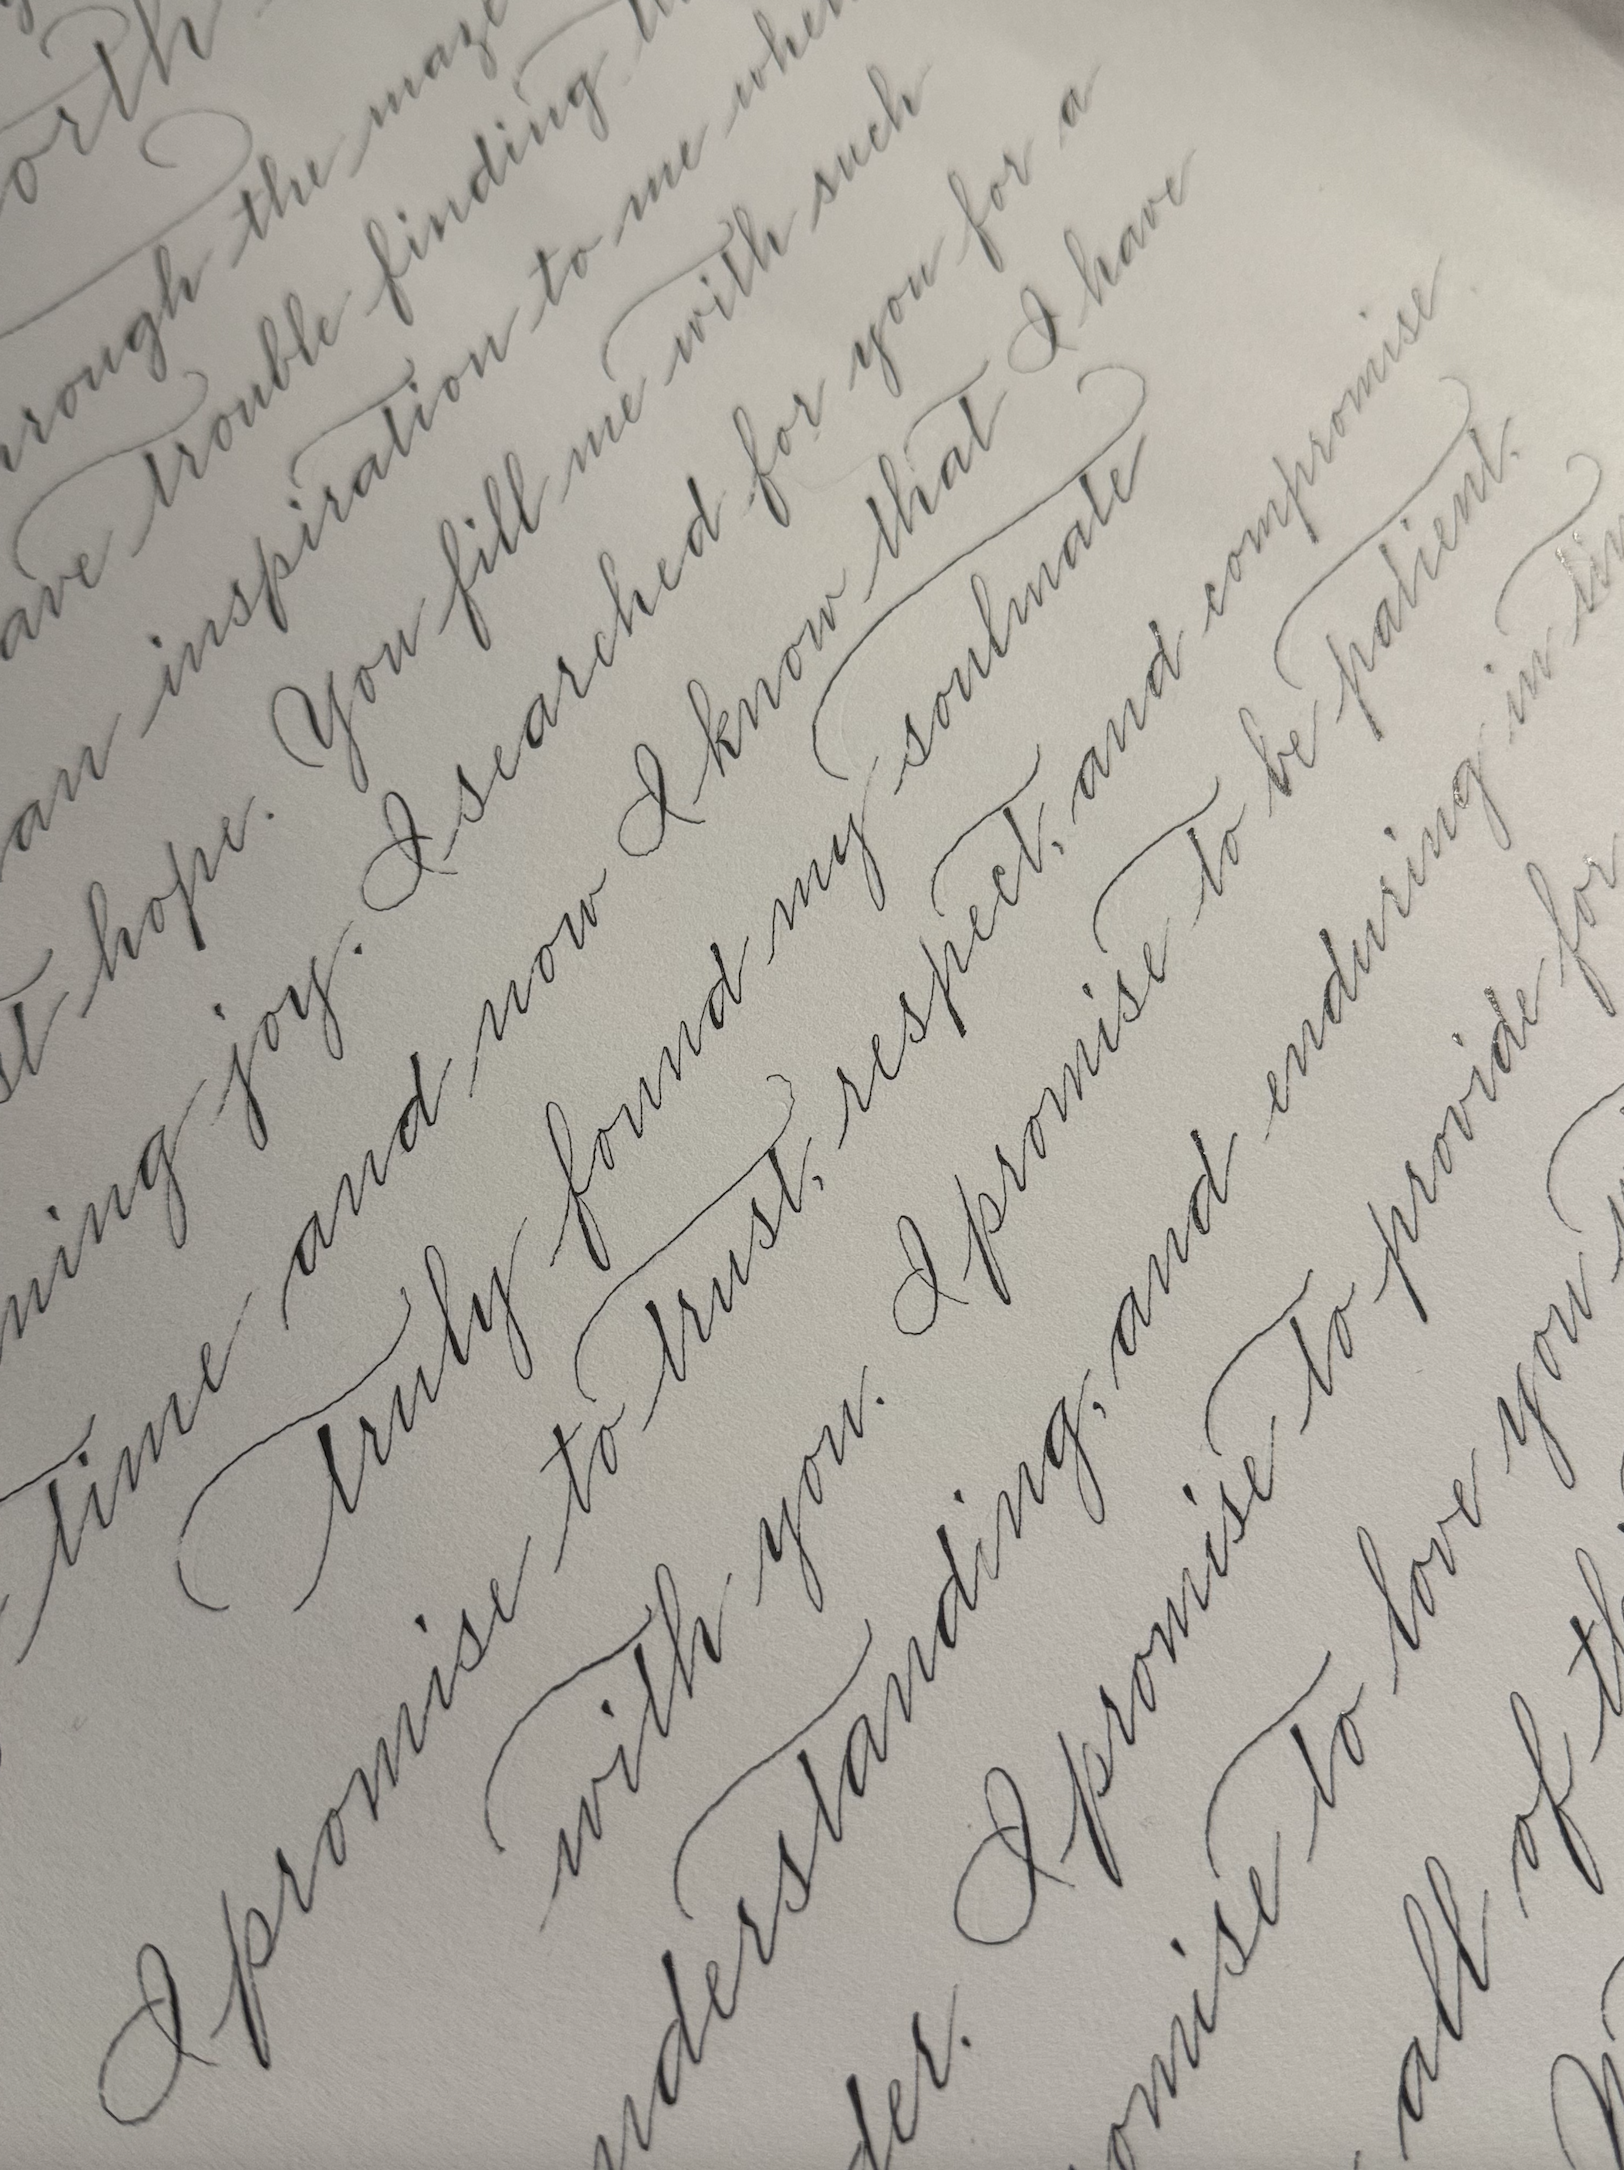 orth
through the maze
have trouble finding
an inspiration to me when
st hope. You fill me with such
ning joy. I searched for you for a
time and now I know that I have
truly found my soulmate
I promise to trust, respect, and compromise
with you. I promise to be patient.
nderstanding, and enduring in
der. I promise to provide for
omise to love you
all of